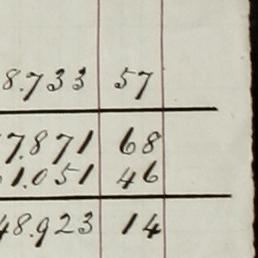 8.733 57
7.871 68
1.051 46
48.923 14